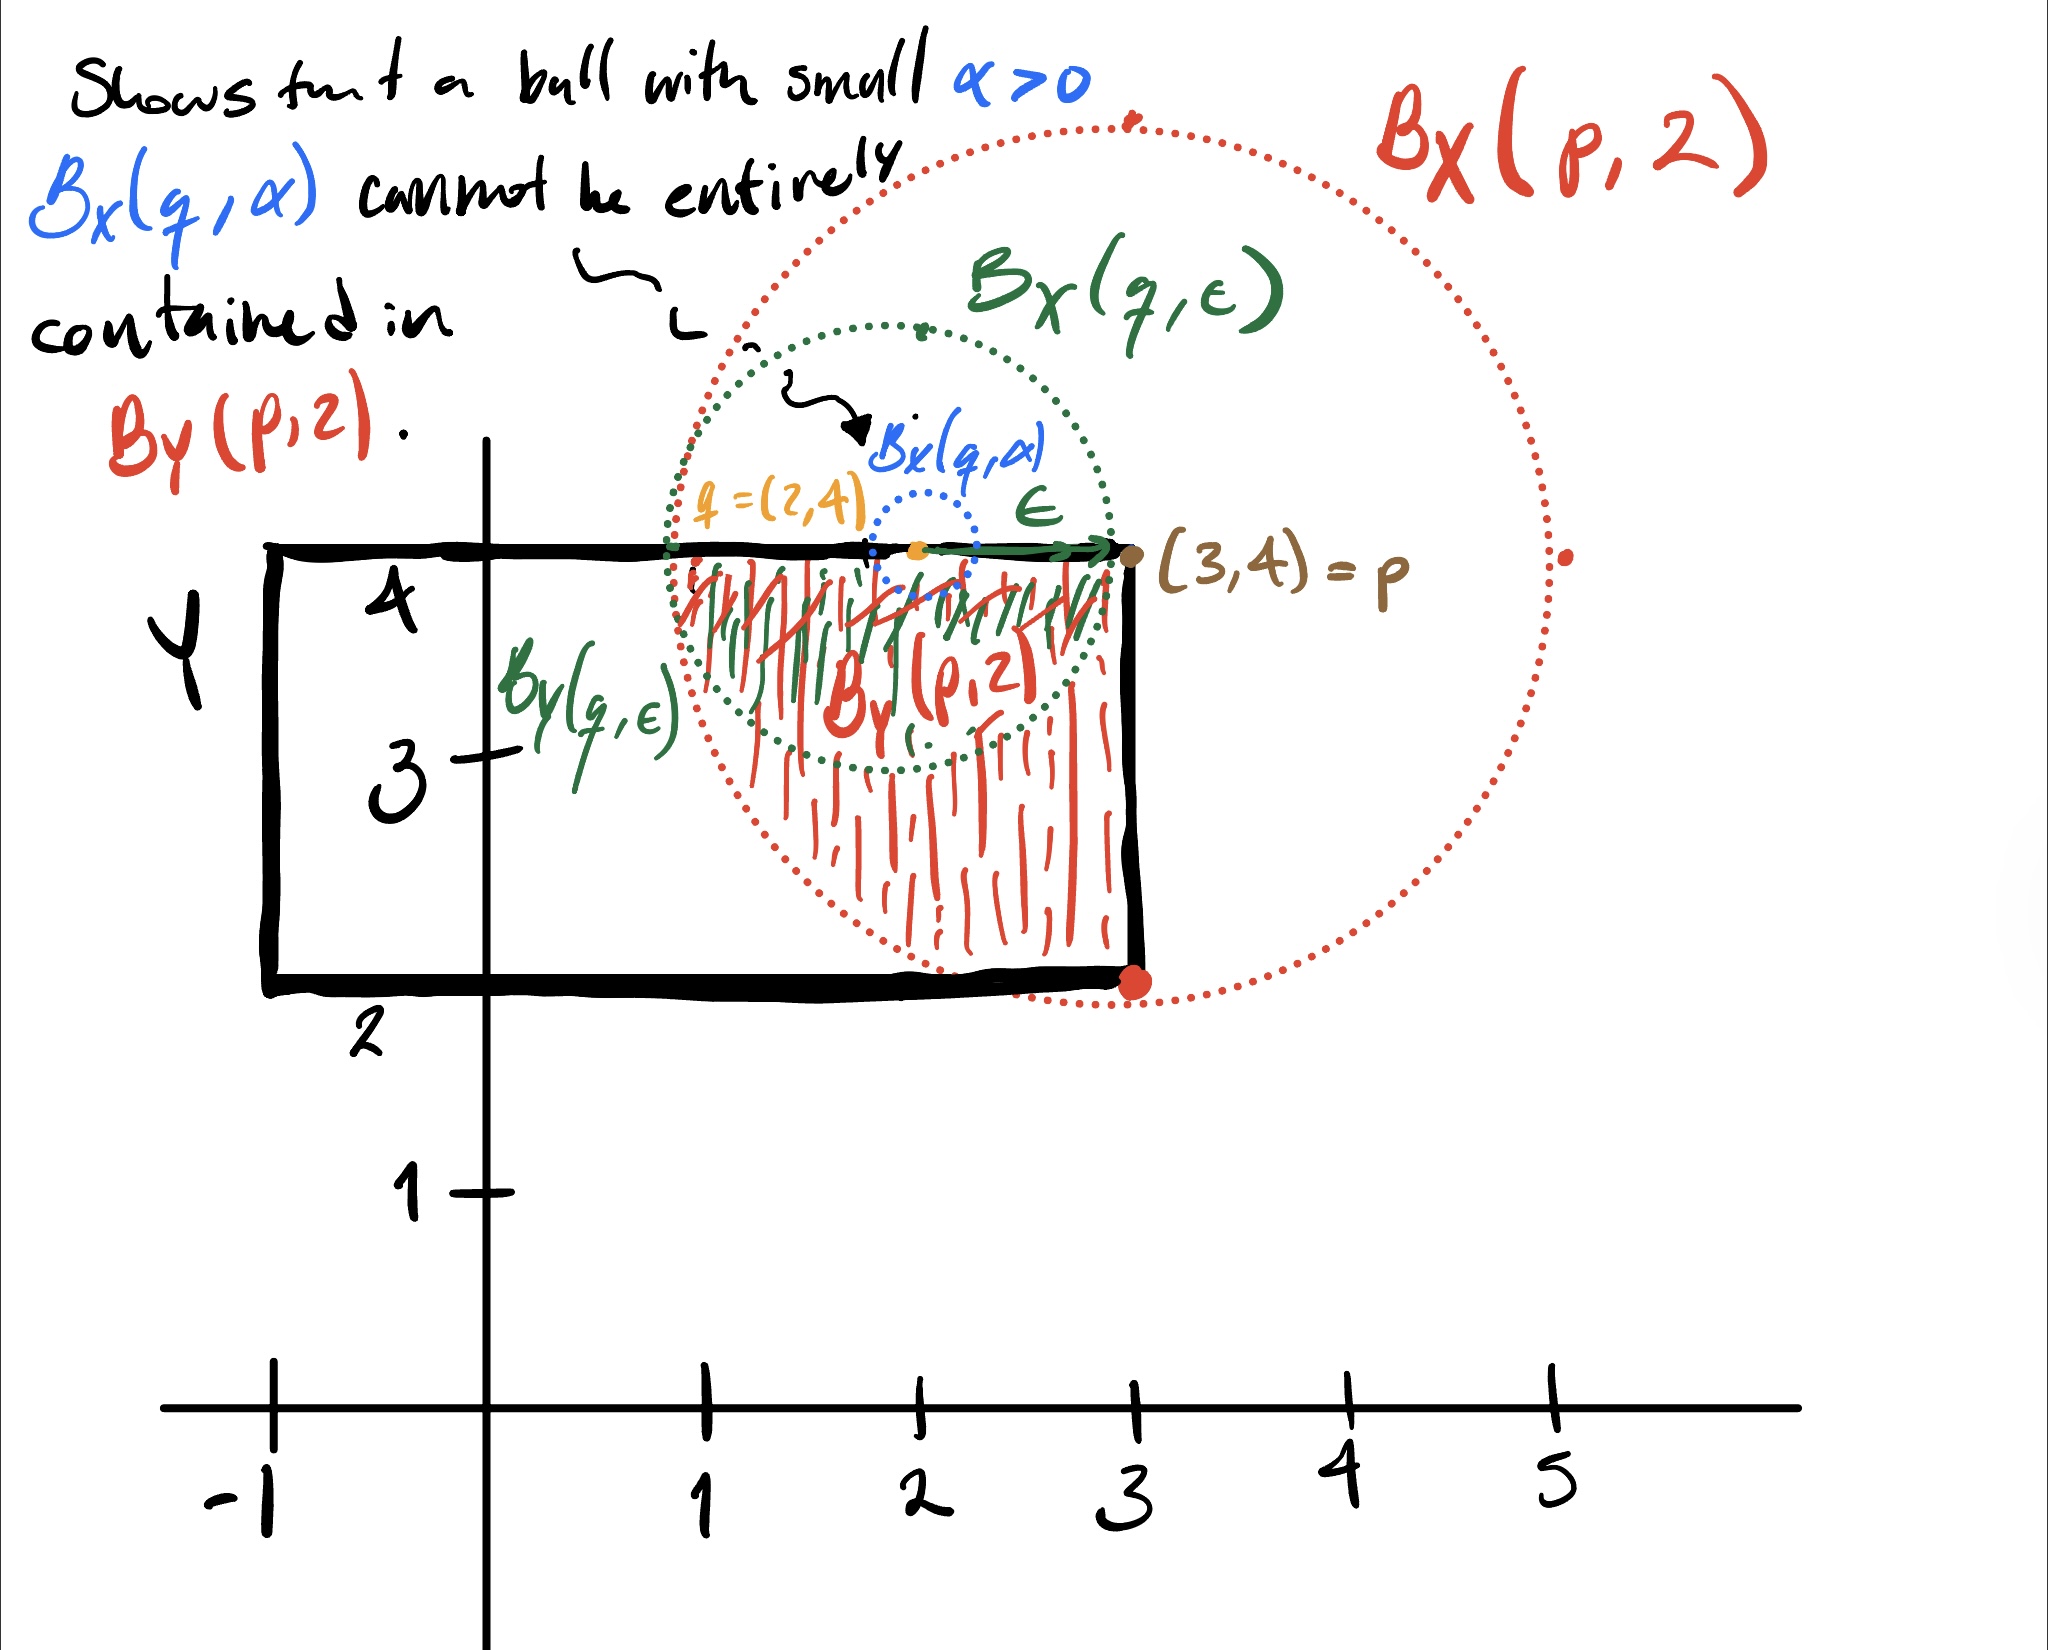 Shows that a ball with small α > 0
Bx(q, α) cannot be entirely
contained in
By(p,2).
Bx(p, 2)
Bx(q, ϵ)
Bx(q, α)
q = (2,4)
ϵ
(3,4) = p
Y
4
By(q, ϵ)
By(p,2)
3
2
1
-1 1 2 3 4 5